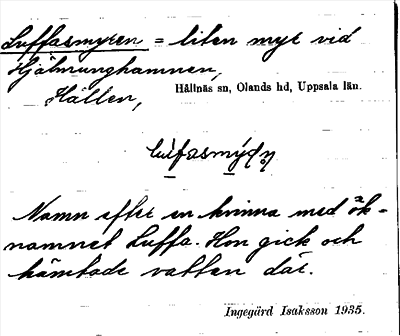 Luffasmyren = liten myr vid
Hjälmunghamnen,
Hållen,
Hållnäs sn, Olands hd, Uppsala län.
Namn efter en kvinna med ök-
namnet Luffa. Hon gick och
hämtade vatten där.
Ingegärd Isaksson 1935.